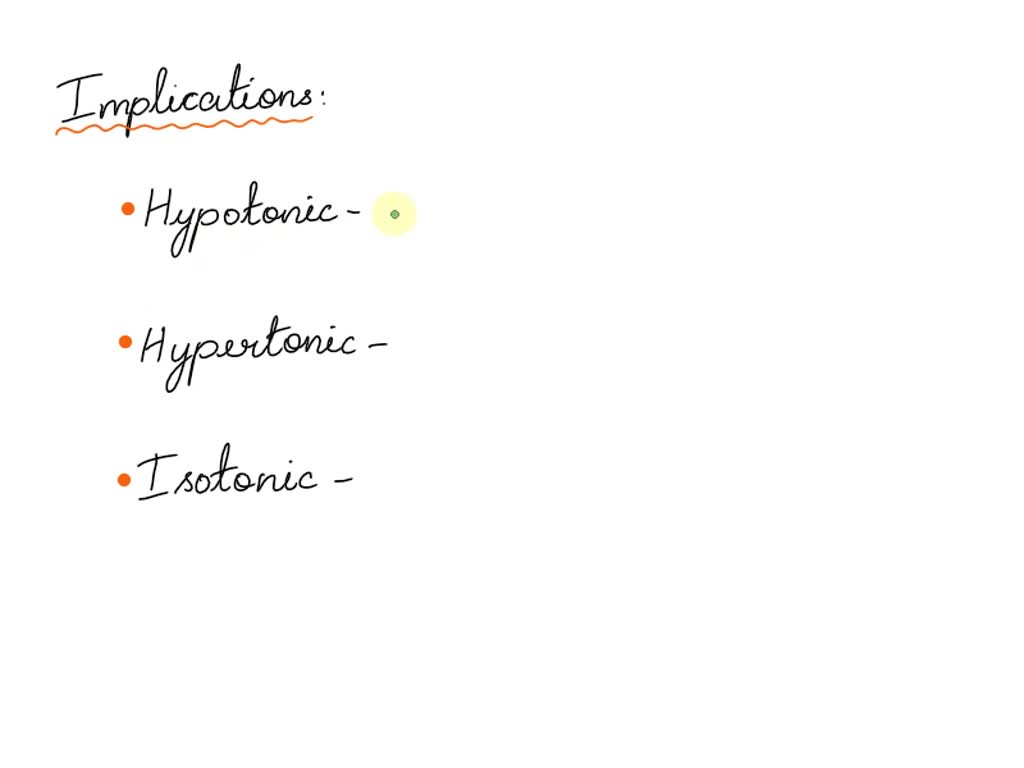 Implications:
• Hypotonic -
• Hypertonic -
• Isotonic -